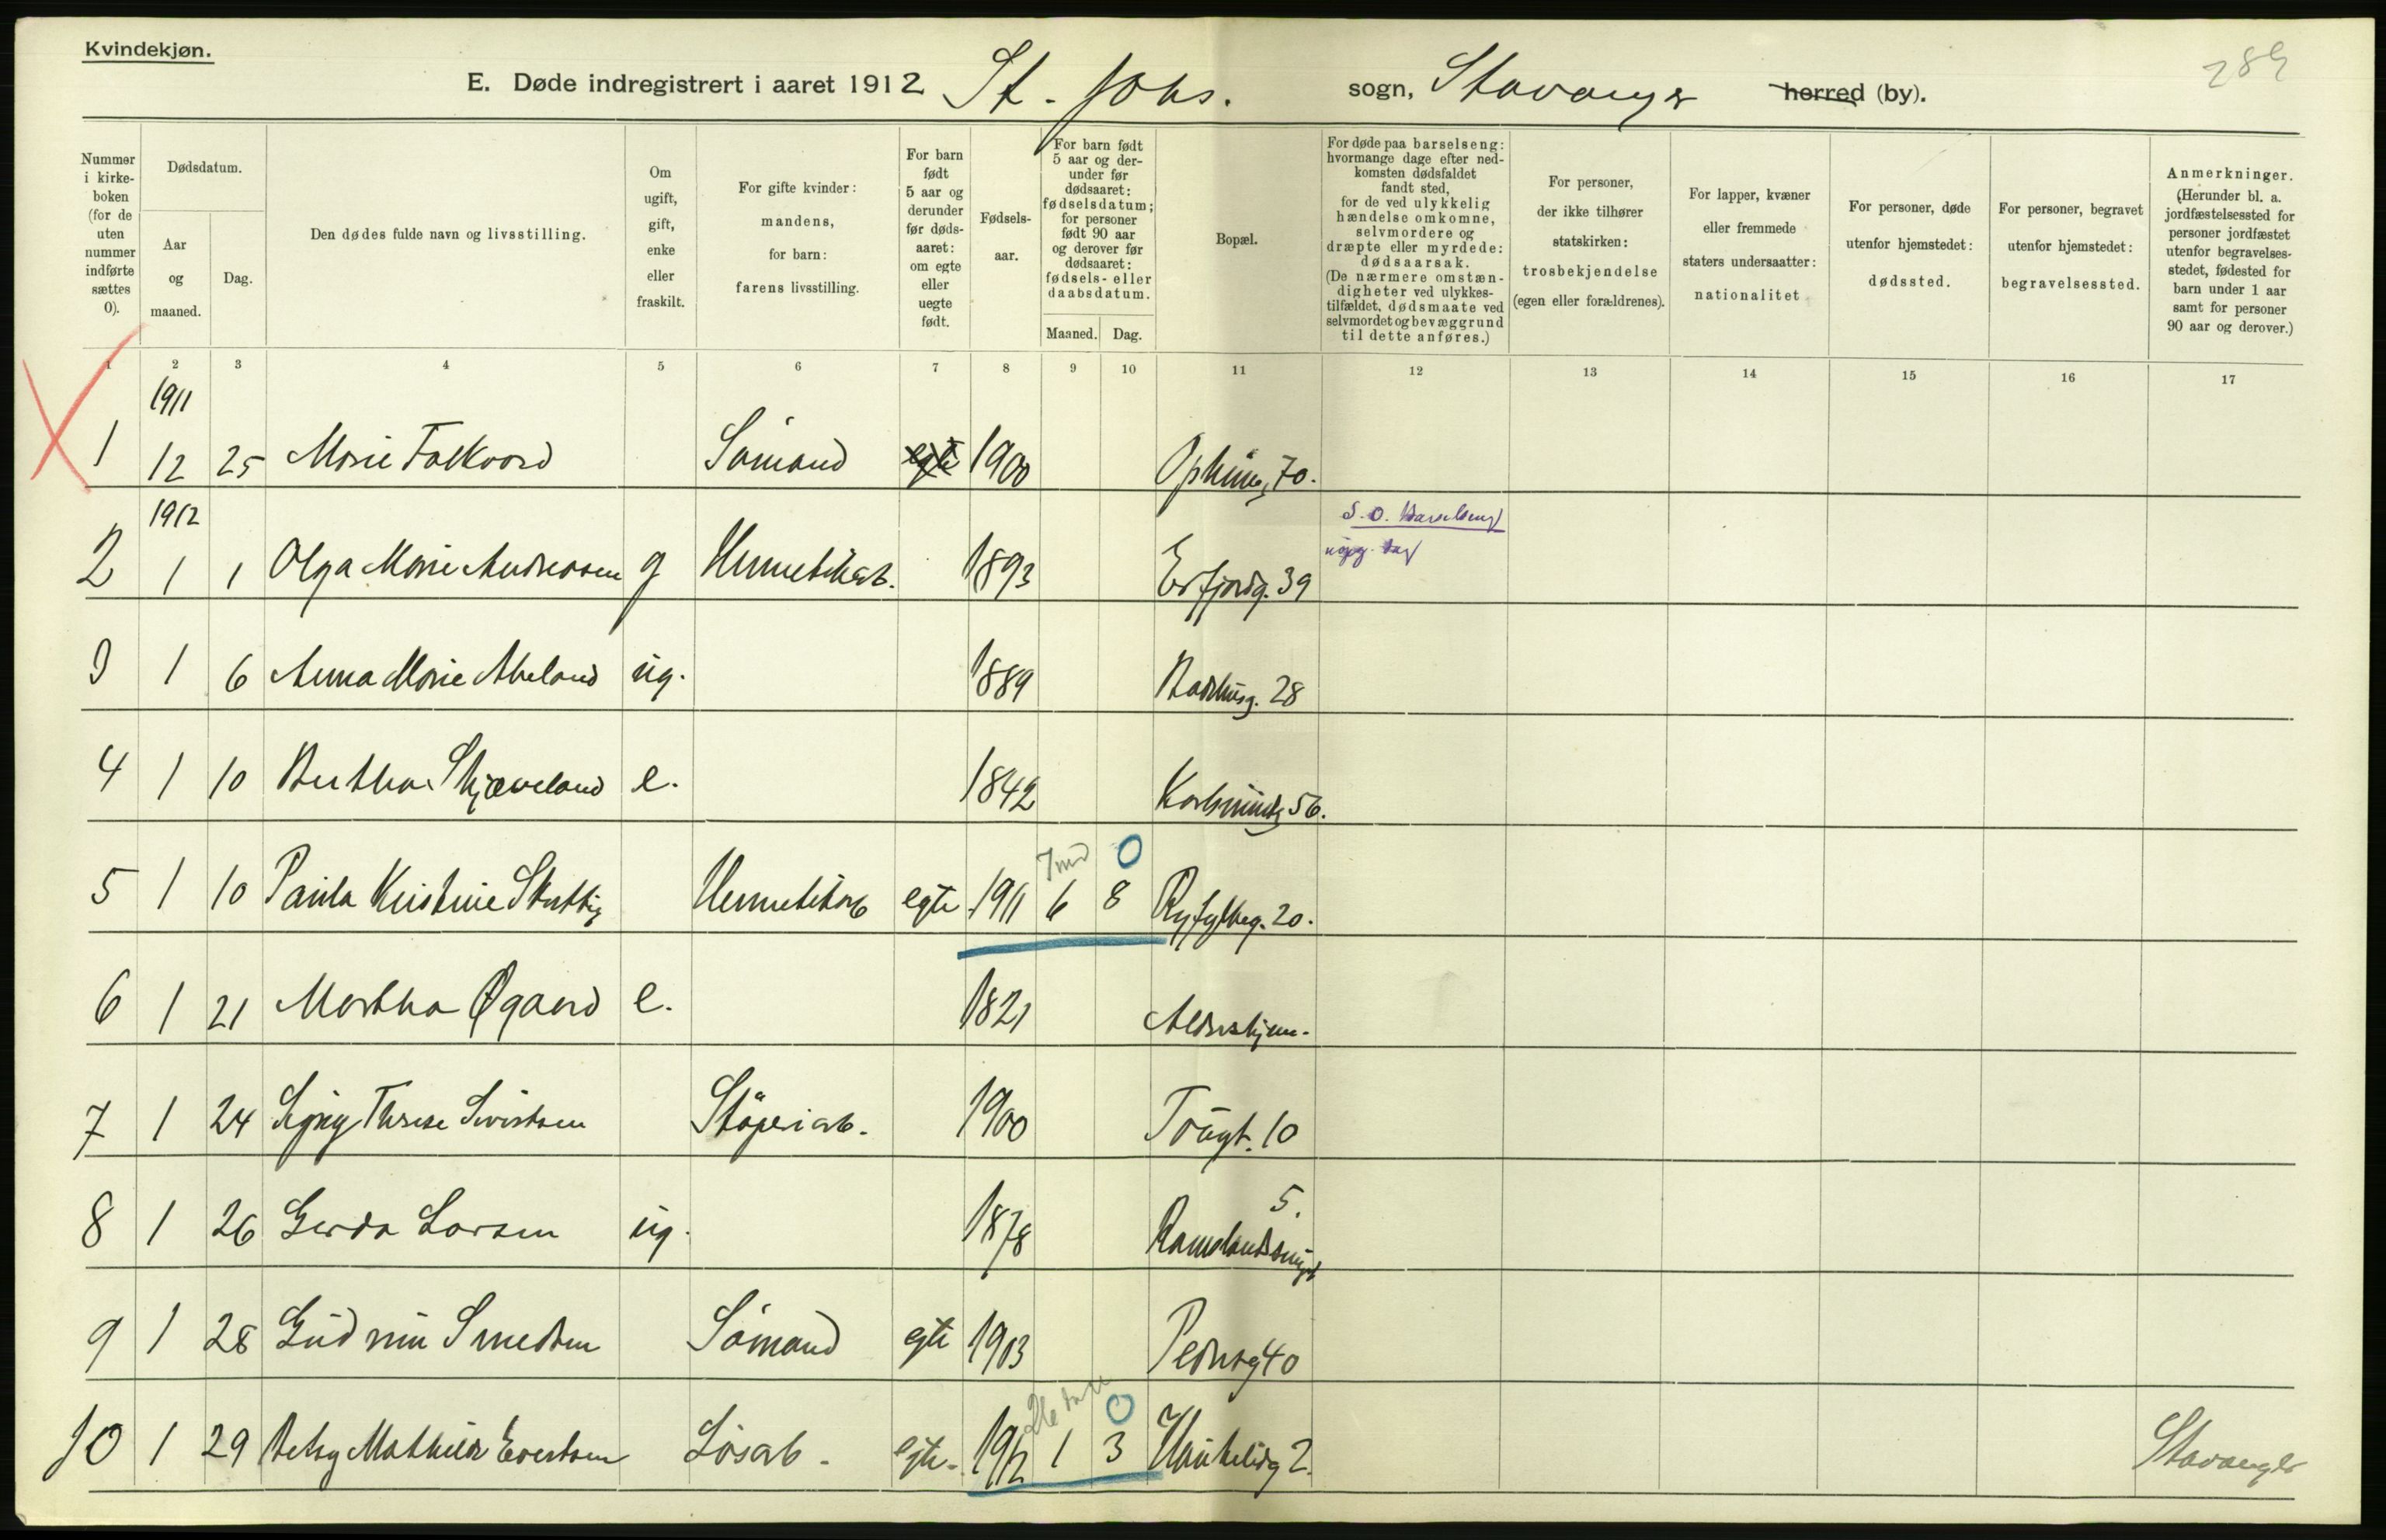 Kvindekjøn.
289
E. Døde indregistrert i aaret 1912 St. Johs. sogn, Stavanger herred (by).
Nummer i kirkeboken (for de uten nummer indførte sættes 0).
Dødsdatum.
Aar og maaned.
Dag.
Den dødes fulde navn og livsstilling.
Om ugift, gift, enke eller fraskilt.
For gifte kvinder: mandens, for barn: farens livsstilling.
For barn født 5 aar og derunder før dødsaaret: om egte eller uegte født.
Fødselsaar.
For barn født 5 aar og derunder før dødsaaret: fødselsdatum; for personer født 90 aar og derover før dødsaaret: fødsels- eller daabsdatum.
Maaned. Dag.
Bopæl.
For døde paa barselseng: hvormange dage efter nedkomsten dødsfaldet fandt sted, for de ved ulykkelig hændelse omkomne, selvmordere og dræpte eller myrdede: dødsaarsak. (De nærmere omstændigheter ved ulykkestilfældet, dødsmaate ved selvmordet og bevæggrund til dette anføres.)
For personer, der ikke tilhører statskirken: trosbekjendelse (egen eller forældrenes).
For lapper, kvæner eller fremmede staters undersaatter: nationalitet
For personer, døde utenfor hjemstedet: dødssted.
For personer, begravet utenfor hjemstedet: begravelsessted.
Anmerkninger. (Herunder bl. a. jordfæstelsessted for personer jordfæstet utenfor begravelsesstedet, fødested for barn under 1 aar samt for personer 90 aar og derover.)
1 2 3 4 5 6 7 8 9 10 11 12 13 14 15 16 17
1911
1 12 25 Marie Falkvard Sømand egte 1900 70.
1912
S. O. Barselseng
2 1 1 Olga Marie Andreassen g Hermetikarb. 1893 Erfjordg. 39
3 1 6 Anna Marie Abeland ug. 1889 Badehusg. 28
4 1 10 Bertha Skjæveland e. 1842 Karlsmindeg 56.
7 md 0
5 1 10 Paula Kristine Hermetikarb egte 1911 6 8 Ryfylkeg. 20.
6 1 21 Martha Øgaard e. 1821 Aldershjem.
7 1 24 Therese Sivertsen Støperiarb. 1900 10
5.
8 1 26 Gerda Larsen ug. 1878
9 1 28 Gudrun Smedsen Sømand egte 1903 Pedersg 40
0
10 1 29 Betsy Mathilde Evertsen Løsarb. egte. 1912 1 3 Haukelig 2. Stavanger